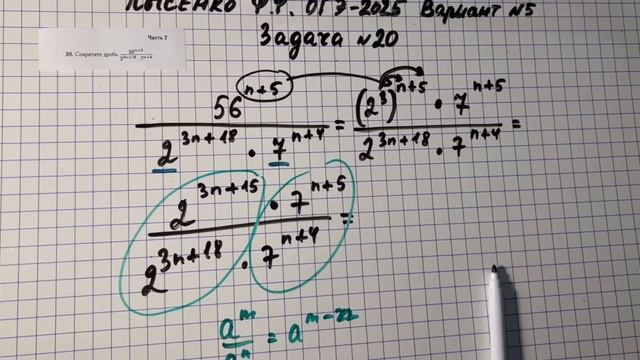 ЛЫСЕНКО Ф.Ф. ОГЭ-2025 Вариант №5
Задача №20
Часть 2
20. Сократите дробь
56^{n+5} / (2^{3n+18} · 7^{n+4}) = ((2^3)^{n+5} · 7^{n+5}) / (2^{3n+18} · 7^{n+4}) =
(2^{3n+15} · 7^{n+5}) / (2^{3n+18} · 7^{n+4}) =
a^m / a^n = a^{m-n}